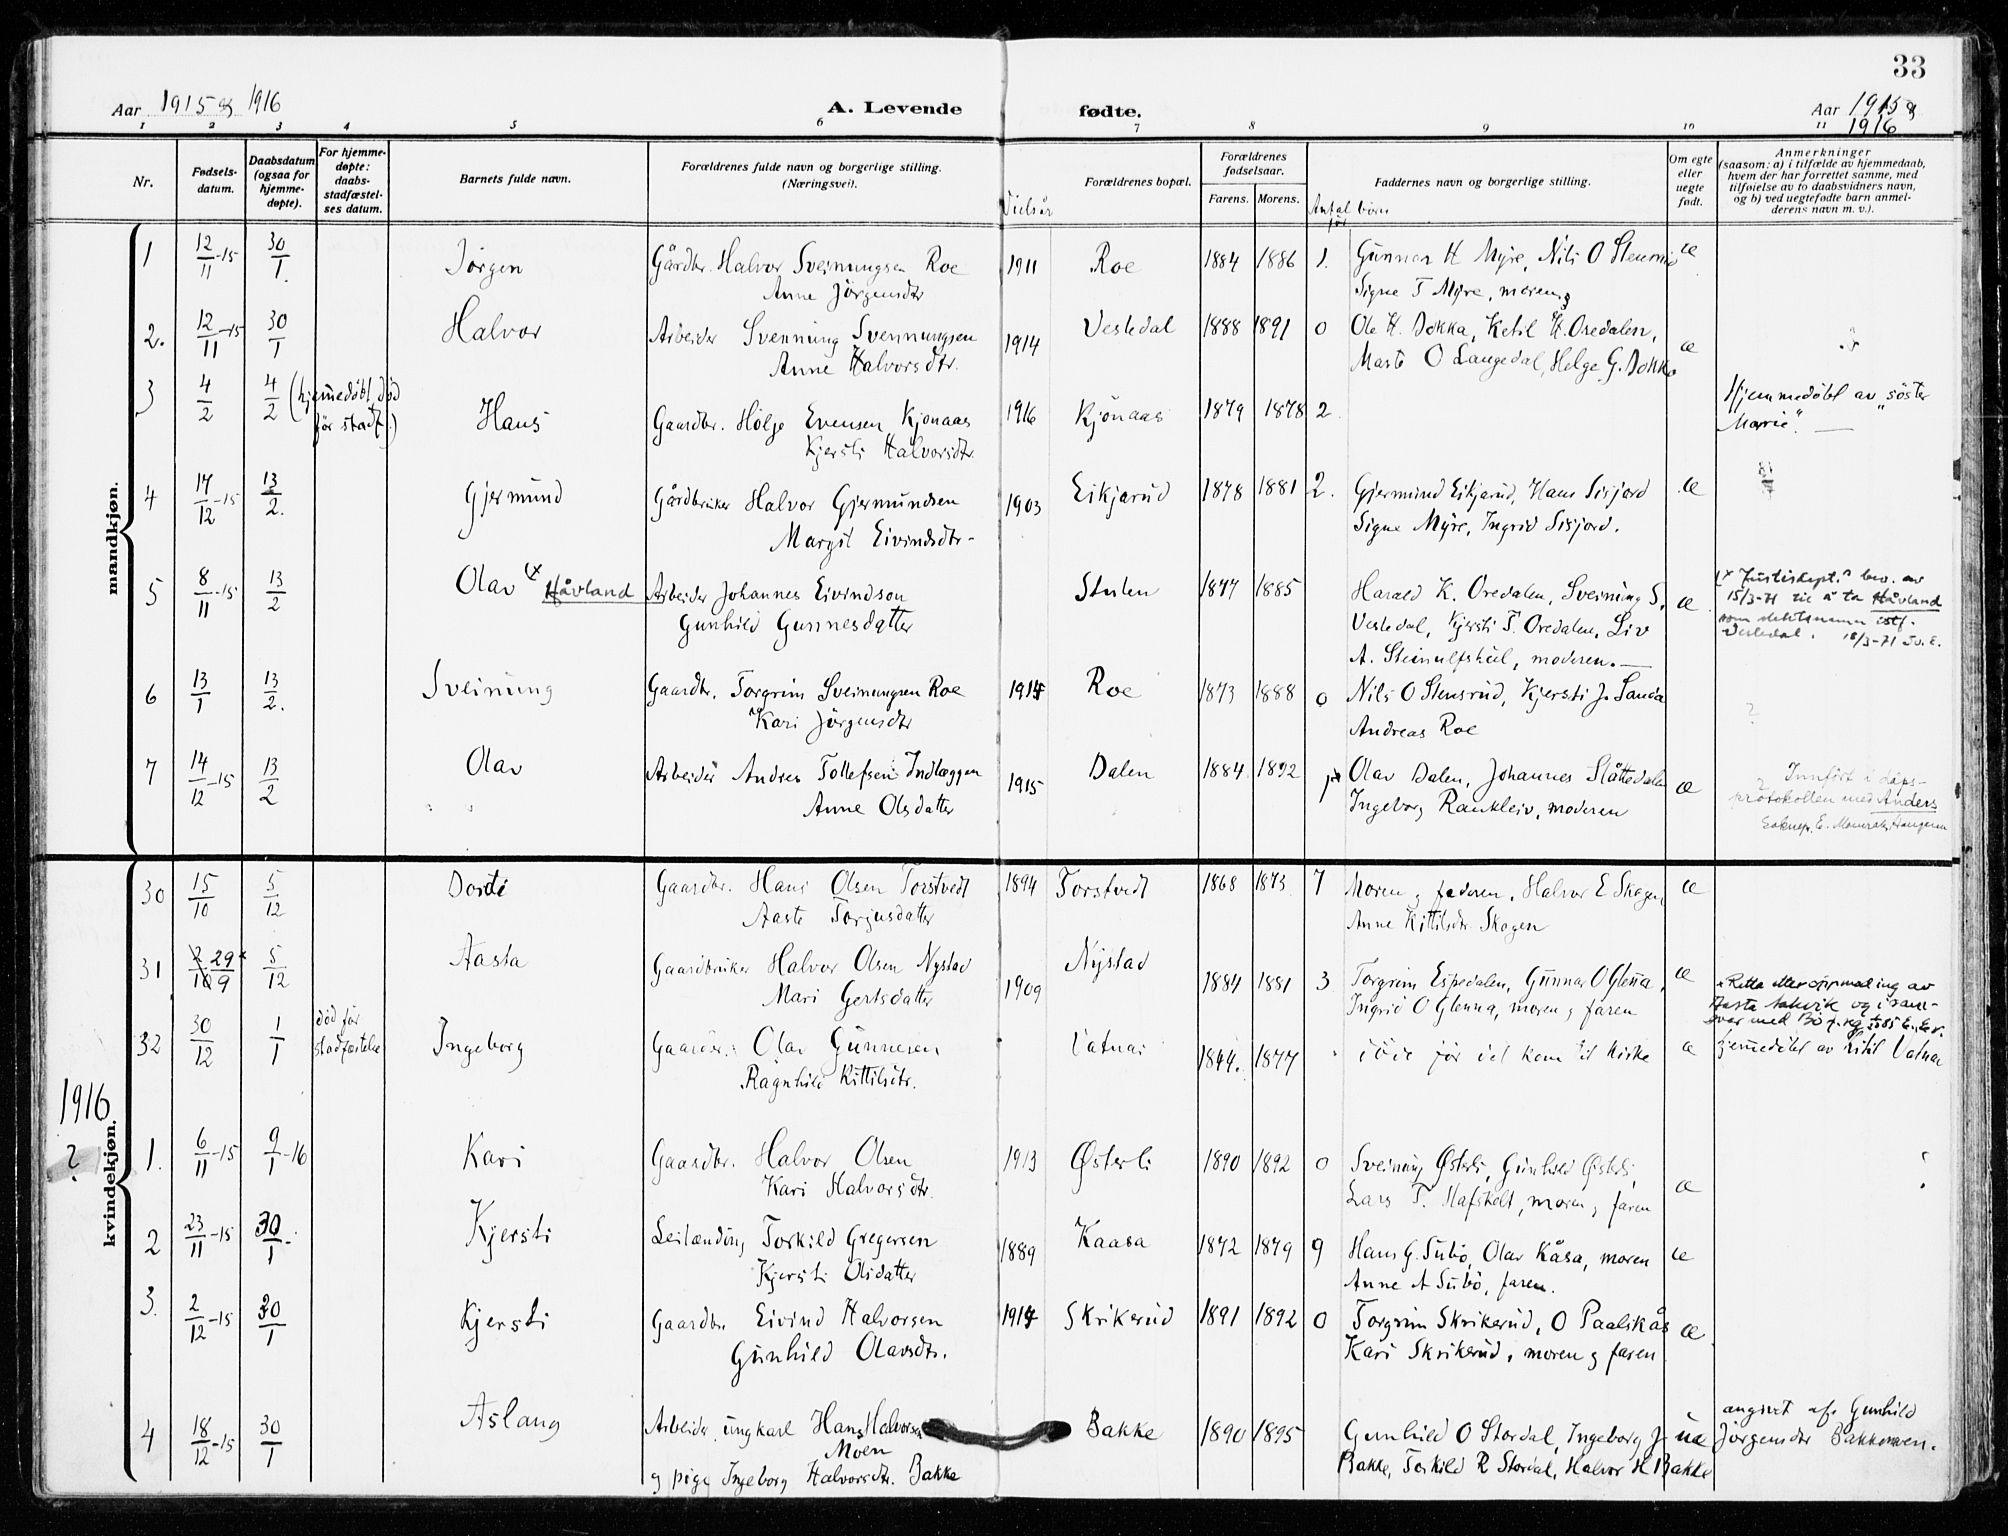 33
Aar 1915 og 1916
A. Levende fødte.
Aar 1915 og 1916
1 2 3 4 5 6 7 8 9 10 11
Nr.
Fødsels-datum.
Daabsdatum (ogsaa for hjemme-døpte).
For hjemme-døpte: daabs-stadfæstel-ses datum.
Barnets fulde navn.
Forældrenes fulde navn og borgerlige stilling. (Næringsvei).
Vielsår
Forældrenes bopæl.
Forældrenes fødselsaar.
Farens. Morens.
Antal børn før
Faddernes navn og borgerlige stilling.
Om egte eller uegte født.
Anmerkninger
(saasom: a) i tilfælde av hjemmedaab, hvem der har forrettet samme, med tilføielse av to daabsvidners navn, og b) ved uegtefødte barn anmel-derens navn m. v.).
mandkjøn.
1 12/11-15 30/1. Jørgen Gårdbr. Halvor Sveinungsen Roe 1911 Roe 1884 1886 1. Gunnar H Myre, Nils O Stensrud æ
Anne Jørgensdtr Signe T Myre, moren
2. 12/11-15 30/1 Halvor Arbeider Svennung Svennungsen 1914 Vesledal 1888 1891 0 Ole H. Dokka, Ketil H. Oredalen, æ
Anne Halvorsdtr. O Langedal, Helge G. Dokka
3 4/2 4/2 (hjemedøbt, død før stadf.) Hans Gaardbr. Holje Evensen Kjonaas 1916 Kjonaas 1879 1878 2 Hjemmedøbt av "søster
Kjersti Halvorsdtr. Marie".
4 17/12-15 13/2. Gjermund Gårdbruker Halvor Gjermundsen 1903 Eikjarud 1878 1881 2. Gjermund Eikjarud, Hans Sisjord æ
Margit Eivindsdtr- Signe Myre, Ingrid Sisjord.
5 8/11-15 13/2 Olav (x Håvland Arbeider Johannes Eivindson Stulen 1877 1885 Harald K. Oredalen, Sveinung S. æ (x Justisdept.s bev. av
Gunhild Gunnesdatter Vesledal, Kjersti T. Oredalen, Liv 15/3-71 til å ta Håvland
A. Steinulfshül, moderen. som slektsnamn istf. Vesledal. 18/3-71
6 13/1 13/2. Sveinung Gaardbr. Torgrim Sveinungsen Roe 1914 Roe 1873 1888 0 Nils O Stensrud, Kjersti J. Sanda ?
Kari Jørgensdtr Andreas Roe
7 14/12-15 13/2 Olav Arbeider Andres Tollefsen Indlæggen 1915 Dalen 1884 1892 Olav Dalen, Johannes Slåttedalen æ ? Innført i dåps-
Anne Olsdatter Ingeborg Raukleiv, moderen protokollen med Anders
kvindekjøn.
30 15/10 5/12 Dorte Gaardbr. Hans Olsen Torstvedt 1894 Torstvedt 1868 1873 7 Moren og faderen, Halvor E Skogen æ
Aaste Torjusdatter Anne Kittilsdtr Skogen
31 2/10 29/9 x 5/12 Aasta Gaardbruker Halvor Olsen Nystad 1909 Nystad 1884 1881 3 Torgrim Espedalen, Gunnar O Glenna, æ x Retta etter oppmoding av
Mari Gertsdatter Ingrid O Glenna, moren og faren
32 30/12 1/1 død før stadfæstelse Ingeborg Gaardbr. Olav Gunnesen Vatnar 1844. 1877 døde før det kom til kirke æ hjemedøbt av Kitil Vatnar
Ragnhild Kittilsdtr.
1916
?
1. 6/11-15 9/1-16 Kari Gaardbr. Halvor Olsen 1913 Østerli 1890 1892 0 Sveinung Østerli, Gunhild Østerli, æ
Kari Halvorsdtr. Lars T. Hafskelt, moren og faren
2 23/11-15 30/1 Kjersti Leilænding Torkild Gregersen 1889 Kaasa 1872 1879 9 Hans G. Subø, Olav Kåsa, moren æ
Kjersti Olsdatter Anne A Subø, faren.
3. 2/12-15 30/1 Kjersti Gaardbr. Eivind Halvorsen 1914 Skrikerud 1891 1892 0 Torgrim Skrikerud, O Paalikås æ
Gunhild Olavsdtr. Kari Skrikerud, moren og faren
4 18/12-15 30/1 Aslaug Arbeider ungkarl Hans Halvorsen Moen Bakke 1890 1895 Gunhild O Stordal, Ingeborg J uæ angivet af Gunhild
og pige Ingeborg Halvorsdtr. Bakke Bakke, Torkild R Stordal, Halvor H Bakke Jørgensdtr Bakkemoen.